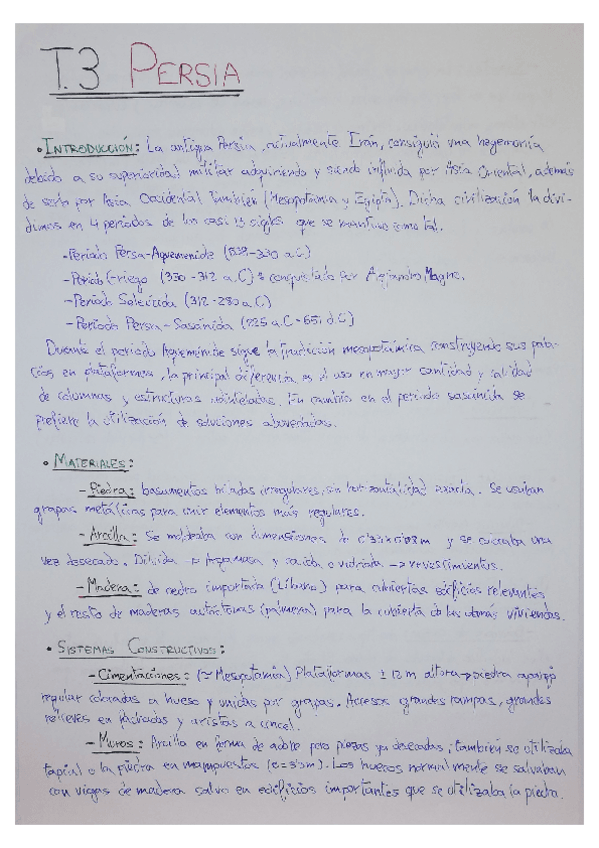 T.3 PERSIA
• INTRODUCCIÓN: La antigua Persia, actualmente Irán, consiguió una hegemonía
debido a su superioridad militar adquiriendo y siendo influida por Asia Oriental, además
de serlo por Asia Occidental también (Mesopotamia y Egipto). Dicha civilización la divi-
dimos en 4 periodos de los casi 13 siglos que se mantuvo como tal.
- Periodo Persa-Aquemenide (538-330 a.C)
- Periodo Griego (330-312 a.C): conquistado por Alejandro Magno.
- Periodo Seleúcida (312-280 a.C)
- Periodo Persa-Sasánida (225 a.C-651 d.C)
Durante el periodo Aqueménide sigue la tradición mesopotámica construyendo sus pala-
cios en plataformas, la principal diferencia es el uso en mayor cantidad y calidad
de columnas y estructuras adinteladas. En cambio en el periodo sasánida se
prefiere la utilización de soluciones abovedadas.
• MATERIALES:
- Piedra: basamentos hiladas irregulares, sin horizontalidad exacta. Se usaban
grapas metálicas para unir elementos más regulares.
- Arcilla: Se moldeaba con dimensiones de y se cocicaba una
vez desecado. Diluida → Argamasa y cocida o vidriada → revestimientos.
- Madera: de cedro importada (Líbano) para cubiertas edificios relevantes
y el resto de maderas autóctonas (palmera) para la cubierta de las demás viviendas.
• SISTEMAS CONSTRUCTIVOS:
- Cimentaciones: (≈ Mesopotamia) Plataformas ± 12 m altura → piedra aparejo
regular colocadas a hueso y unidas por grapas. Accesos grandes rampas, grandes
relieves en fachadas y aristas a cincel.
- Muros: Arcilla en forma de adobe pero piezas ya desecadas; también se utilizaba
tapial o la piedra en mampuestos Los huecos normalmente se salvaban
con vigas de madera salvo en edificios importantes que se utilizaba la piedra.